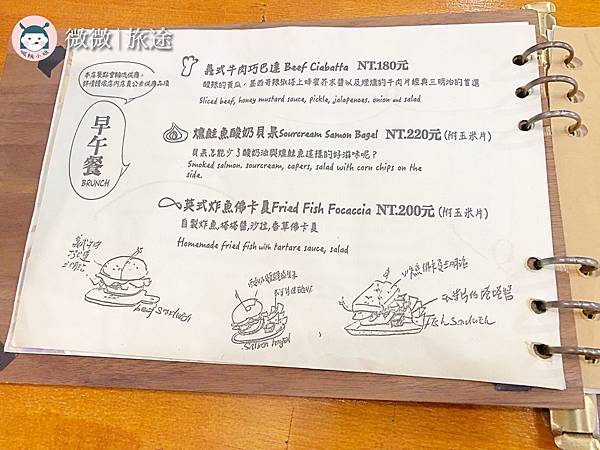 微微|旅途
本店餐點會輪流供應，
詳情請依店內店員公告供應品項
早午餐
BRUNCH
義式牛肉巧巴達 Beef Ciabatta NT.180元
酸辣的黃瓜，墨西哥辣椒搭上蜂蜜芥末醬以及煙燻的牛肉片經典三明治的首選
Sliced beef, honey mustard sauce, pickle, jalapenoes, onion and salad
燻鮭魚酸奶貝果Sourcream Samon Bagel NT.220元(附玉米片)
貝果怎能少了酸奶油與燻鮭魚這樣的好滋味呢？
Smoked salmon, sourcream, capers, salad with corn chips on the
side.
英式炸魚佛卡夏Fried Fish Focaccia NT.200元(附玉米片)
自製炸魚,塔塔醬,沙拉,香草佛卡夏
Homemade fried fish with tartare sauce, salad
Beef sandwich
Salmon bagel
Fish Sandwich